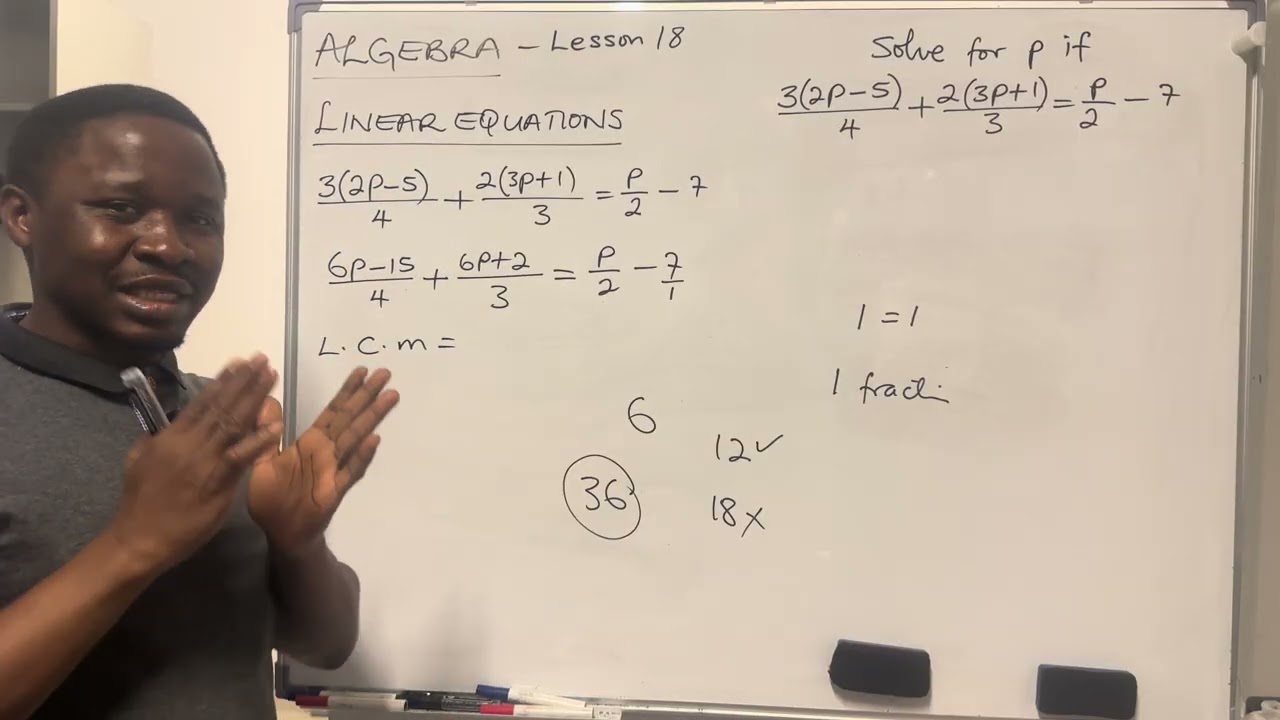 ALGEBRA - Lesson 18
LINEAR EQUATIONS
3(2p-5)/4 + 2(3p+1)/3 = p/2 - 7
6p-15/4 + 6p+2/3 = p/2 - 7/1
L.C.m =
6
36
12✓
18x
Solve for p if
3(2p-5)/4 + 2(3p+1)/3 = p/2 - 7
1 = 1
1 fracti